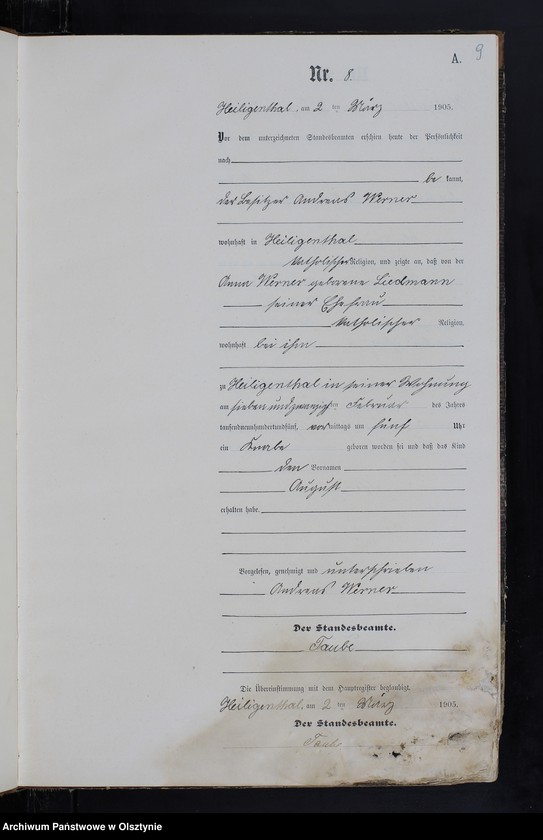 9
A.
Nr. 8.
Heiligenthal, am 2 ten März 1905.
Vor dem unterzeichneten Standesbeamten erschien heute der Persönlichkeit
nach
be kannt,
der Besitzer Andreas Werner
wohnhaft in Heiligenthal
katholischer Religion, und zeigte an, daß von der
Anna Werner geborene Liedmann
seiner Ehefrau
katholischer Religion,
wohnhaft bei ihm
zu Heiligenthal in seiner Wohnung
am siebenundzwanzigsten Februar des Jahres
tausendneunhundertundfünf, vormittags um fünf Uhr
ein Knabe geboren worden sei und daß das Kind
den Vornamen
August
erhalten habe.
Vorgelesen, genehmigt und unterschrieben
Andreas Werner
Der Standesbeamte.
Taube
Die Übereinstimmung mit dem Hauptregister beglaubigt.
Heiligenthal, am 2 ten März 1905.
Der Standesbeamte.
Taube
Archiwum Państwowe w Olsztynie